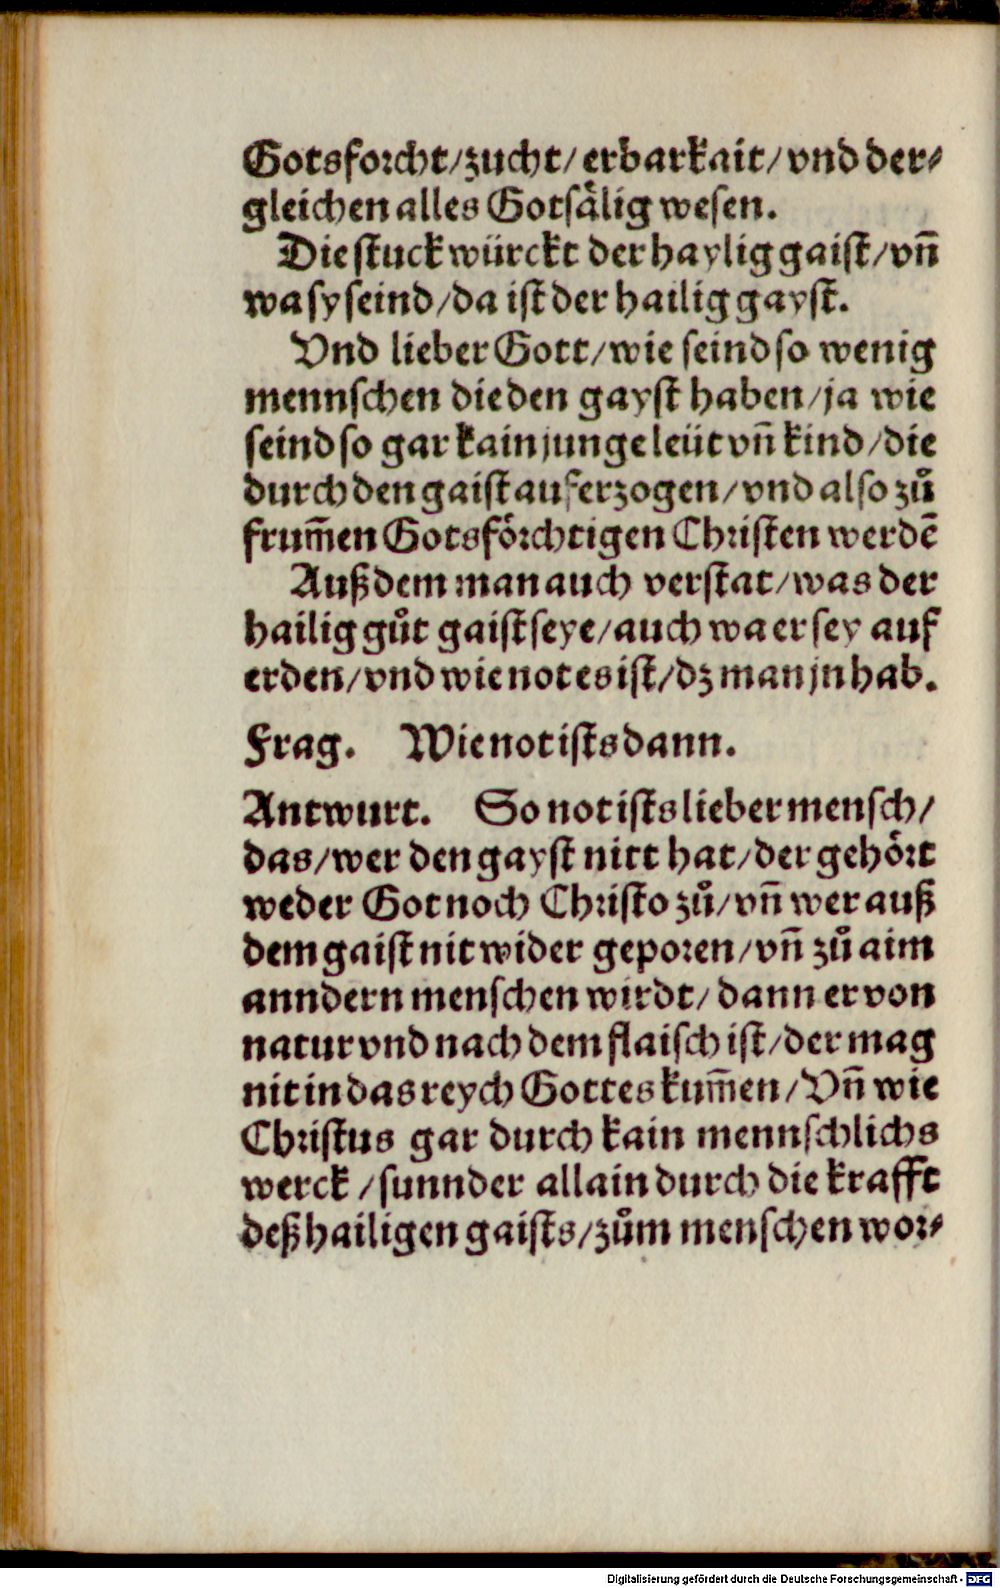 Gotsforcht/zucht/erbarkait/vnd der⸗
gleichen alles Gotsälig wesen.
Die stuck würckt der haylig gaist/vñ
wa sy seind/da ist der hailig gayst.
Vnd lieber Gott/wie seind so wenig
mennschen die den gayst haben/ja wie
seind so gar kain junge leüt vñ kind/die
durch den gaist auferzogen/vnd also zů
frum̃en Gotsförchtigen Christen werdẽ
Auß dem man auch verstat/was der
hailig gůt gaist seye/auch wa er sey auf
erden/vnd wie not es ist/dz man jn hab.
Frag. Wie not ists dann.
Antwurt. So not ists lieber mensch/
das/wer den gayst nitt hat/der gehört
weder Got noch Christo zů/vñ wer auß
dem gaist nit wider geporen/vñ zů aim
anndern menschen wirdt/dann er von
natur vnd nach dem flaisch ist/der mag
nit in das reych Gottes kum̃en/Vñ wie
Christus gar durch kain mennschlichs
werck/sunnder allain durch die krafft
deß hailigen gaists/zům menschen wor⸗
Digitalisierung gefördert durch die Deutsche Forschungsgemeinschaft - DFG